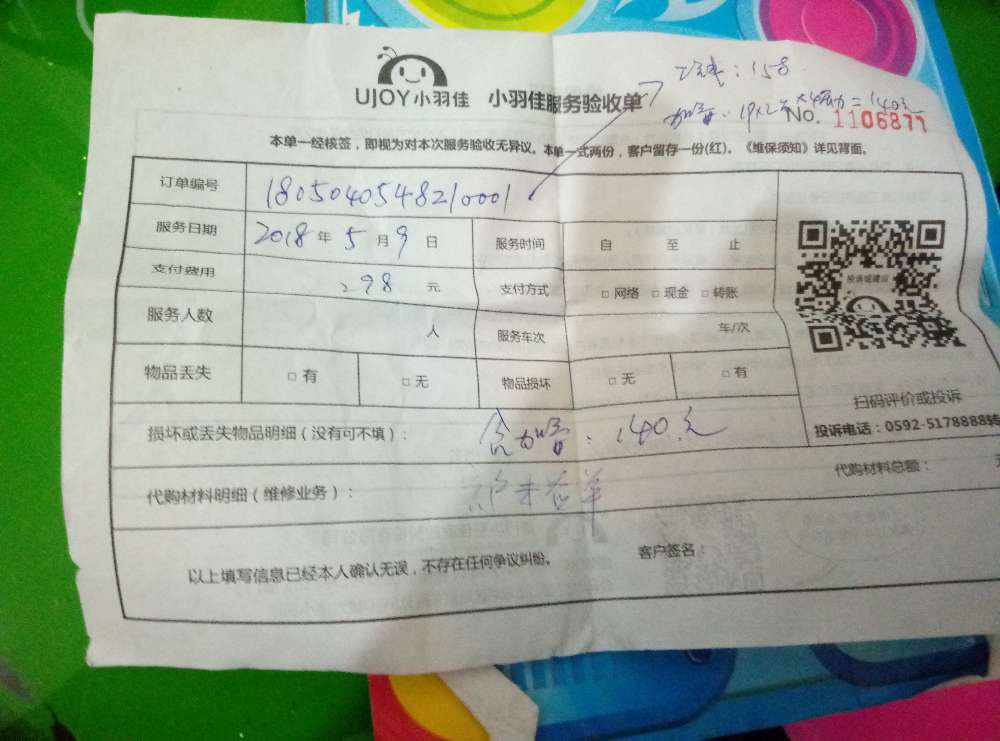 UJOY小羽佳 小羽佳服务验收单
:158
No. 1106877
本单一经核签，即视为对本次服务验收无异议。本单一式两份，客户留存一份(红)。《维保须知》详见背面。
订单编号 1805040548210001
服务日期 2018年5月9日 服务时间 自 至 止
支付费用 298元 支付方式 □网络 □现金 □转账
服务人数 人 服务车次 年/次
物品丢失 □有 □无 物品损坏 □无 □有
投诉或建议
扫码评价或投诉
投诉电话：0592-5178888转
损坏或丢失物品明细（没有可不填）： 含加 140元
代购材料明细（维修业务）： 代购材料总额：
以上填写信息已经本人确认无误，不存在任何争议纠纷。 客户签名：